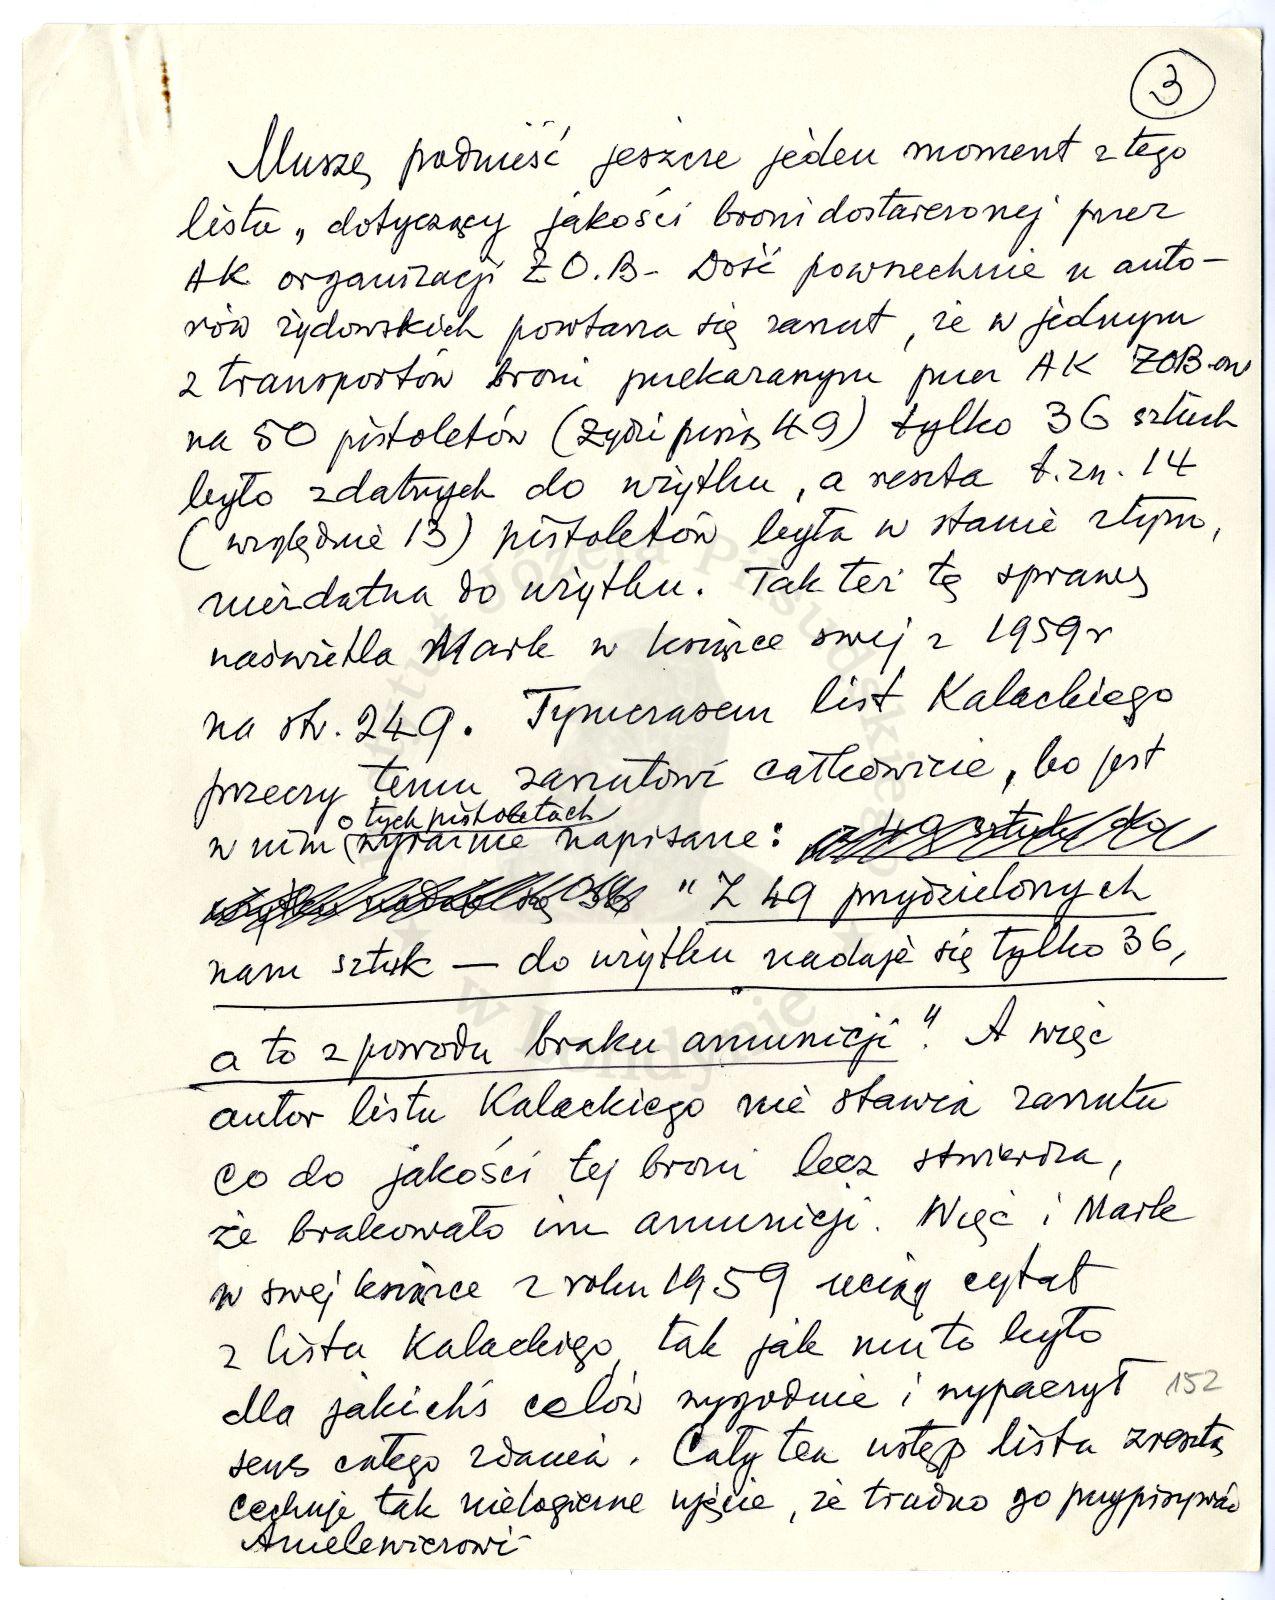 3
Muszę podnieść jeszcze jeden moment z tego
listu, dotyczący jakości broni dostarczonej przez
AK organizacji ŻO.B- Dość powszechnie u auto-
rów żydowskich powtarza się zarzut, że w jednym
z transportów broni przekazanym przez AK ŻOB-ow
na 50 pistoletów (Żydzi piszą 49) tylko 36 sztuk
było zdatnych do użytku, a reszta t.zn. 14
(względnie 13) pistoletów była w stanie złym,
niezdatna do użytku. Tak też tę sprawę
naświetla Mark w książce swej z 1959 r
na str. 249. Tymczasem list Kalackiego
przeczy temu zarzutowi całkowicie, bo jest
o tych pistoletach
w nim wyraźnie napisane: a 49 sztuk do
użytku nadaje się 36 "Z 49 przydzielonych
nam sztuk — do użytku nadaje się tylko 36,
a to z powodu braku amunicji". A więc
autor listu Kalackiego nie stawia zarzutu
co do jakości tej broni lecz stwierdza,
że brakowało im amunicji. Więc i Mark
w swej książce z roku 1959 uciął cytat
z listu Kalackiego, tak jak mu to było
dla jakichś celów wygodnie i wypaczył
152
sens całego zdania. Cały ten ustęp listu zresztą
cechuje tak nielogiczne ujęcie, że trudno go przypisywać
Anielewiczowi-
Instytut Józefa Piłsudskiego
w Londynie